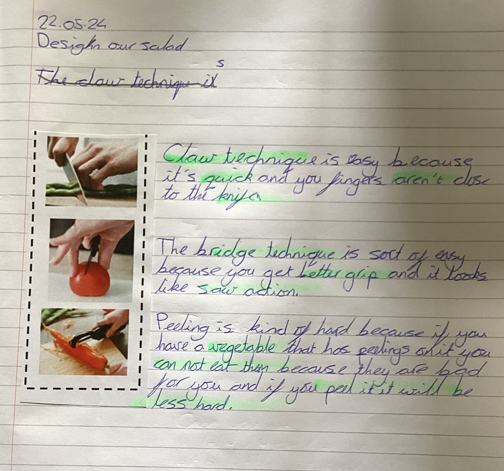 22.05.24
Desigkn our salad
The claw technique it
s
Claw technique is easy because
it's quick and you fingers aren't close
to the knife.
The bridge technique is sort of easy
because you get better grip and it looks
like saw action.
Peeling is kind of hard because if you
have a vegetable that has peelings on it you
can not eat them because they are bad
for you and if you peel it it will be
less hard.